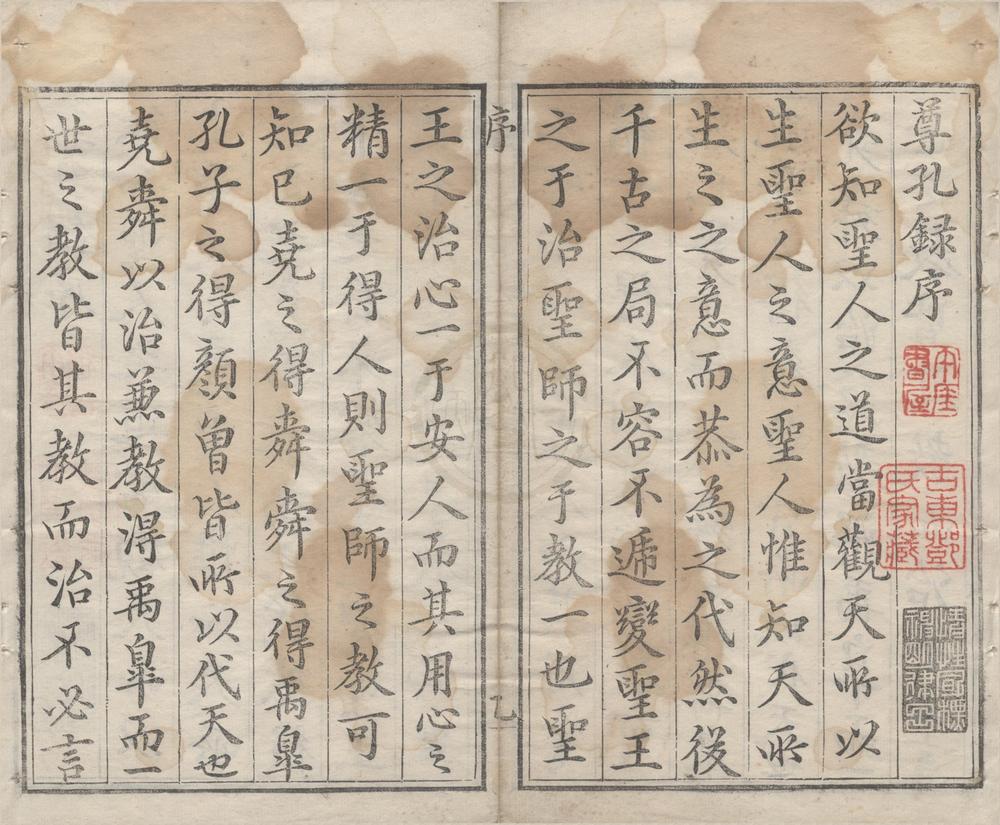 尊孔録序
欲知聖人之道當觀天所以
生聖人之意聖人惟知天所
生之之意而恭為之代然後
千古之局不容不遞變聖王
之于治聖師之于教一也聖
序
乙
王之治心一于安人而其用心之
精一于得人則聖師之教可
知已堯之得舜舜之得禹臯
孔子之得顏曾皆所以代天也
堯舜以治兼教得禹臯而一
世之教皆其教而治不必言
古東鄧
氏家藏